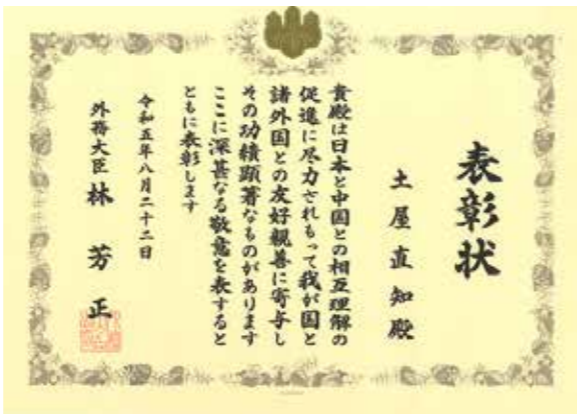 表彰状
土屋直知殿
貴殿は日本と中国との相互理解の
促進に尽力されもって我が国と
諸外国との友好親善に寄与し
その功績顕著なものがあります
ここに深甚なる敬意を表すると
ともに表彰します
令和五年八月二十二日
外務大臣 林芳正